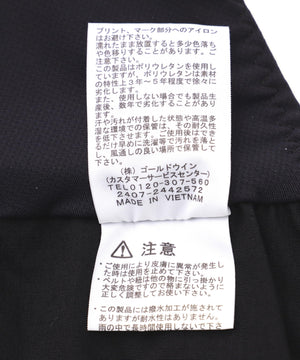 プリント、マーク部分へのアイロン
はお避け下さい。
濡れたまま放置すると多少色落ち
や色移りすることがあります。ご
注意下さい。
この製品はポリウレタンを使用し
ております。ポリウレタンは素材
の特性上3年～5年程度で徐々に
劣化します。
また、使用しない場合でも製品生
産後、数年で劣化することがあり
ます。
汗や汚れが付着した状態や高温多
湿な環境での保管は、その耐久性
を低下させます。ご使用後はでき
るだけ早めに洗濯等で汚れを落と
し、風通しの良い場所で保管して
下さい。
(株) ゴールドウイン
(カスタマーサービスセンター)
TEL0120-307-560
2407-2442572
MADE IN VIETNAM
注意
・ご使用により皮膚に異常が発生し
た時は使用を止めて下さい。
・ベルトや紐は他の物に引っ掛かり
大変危険ですので絡まないように
正しく調整してお使い下さい。
・この製品には撥水加工が施されて
ありますが耐水性はありません。
雨の中で長時間使用しないで下さ